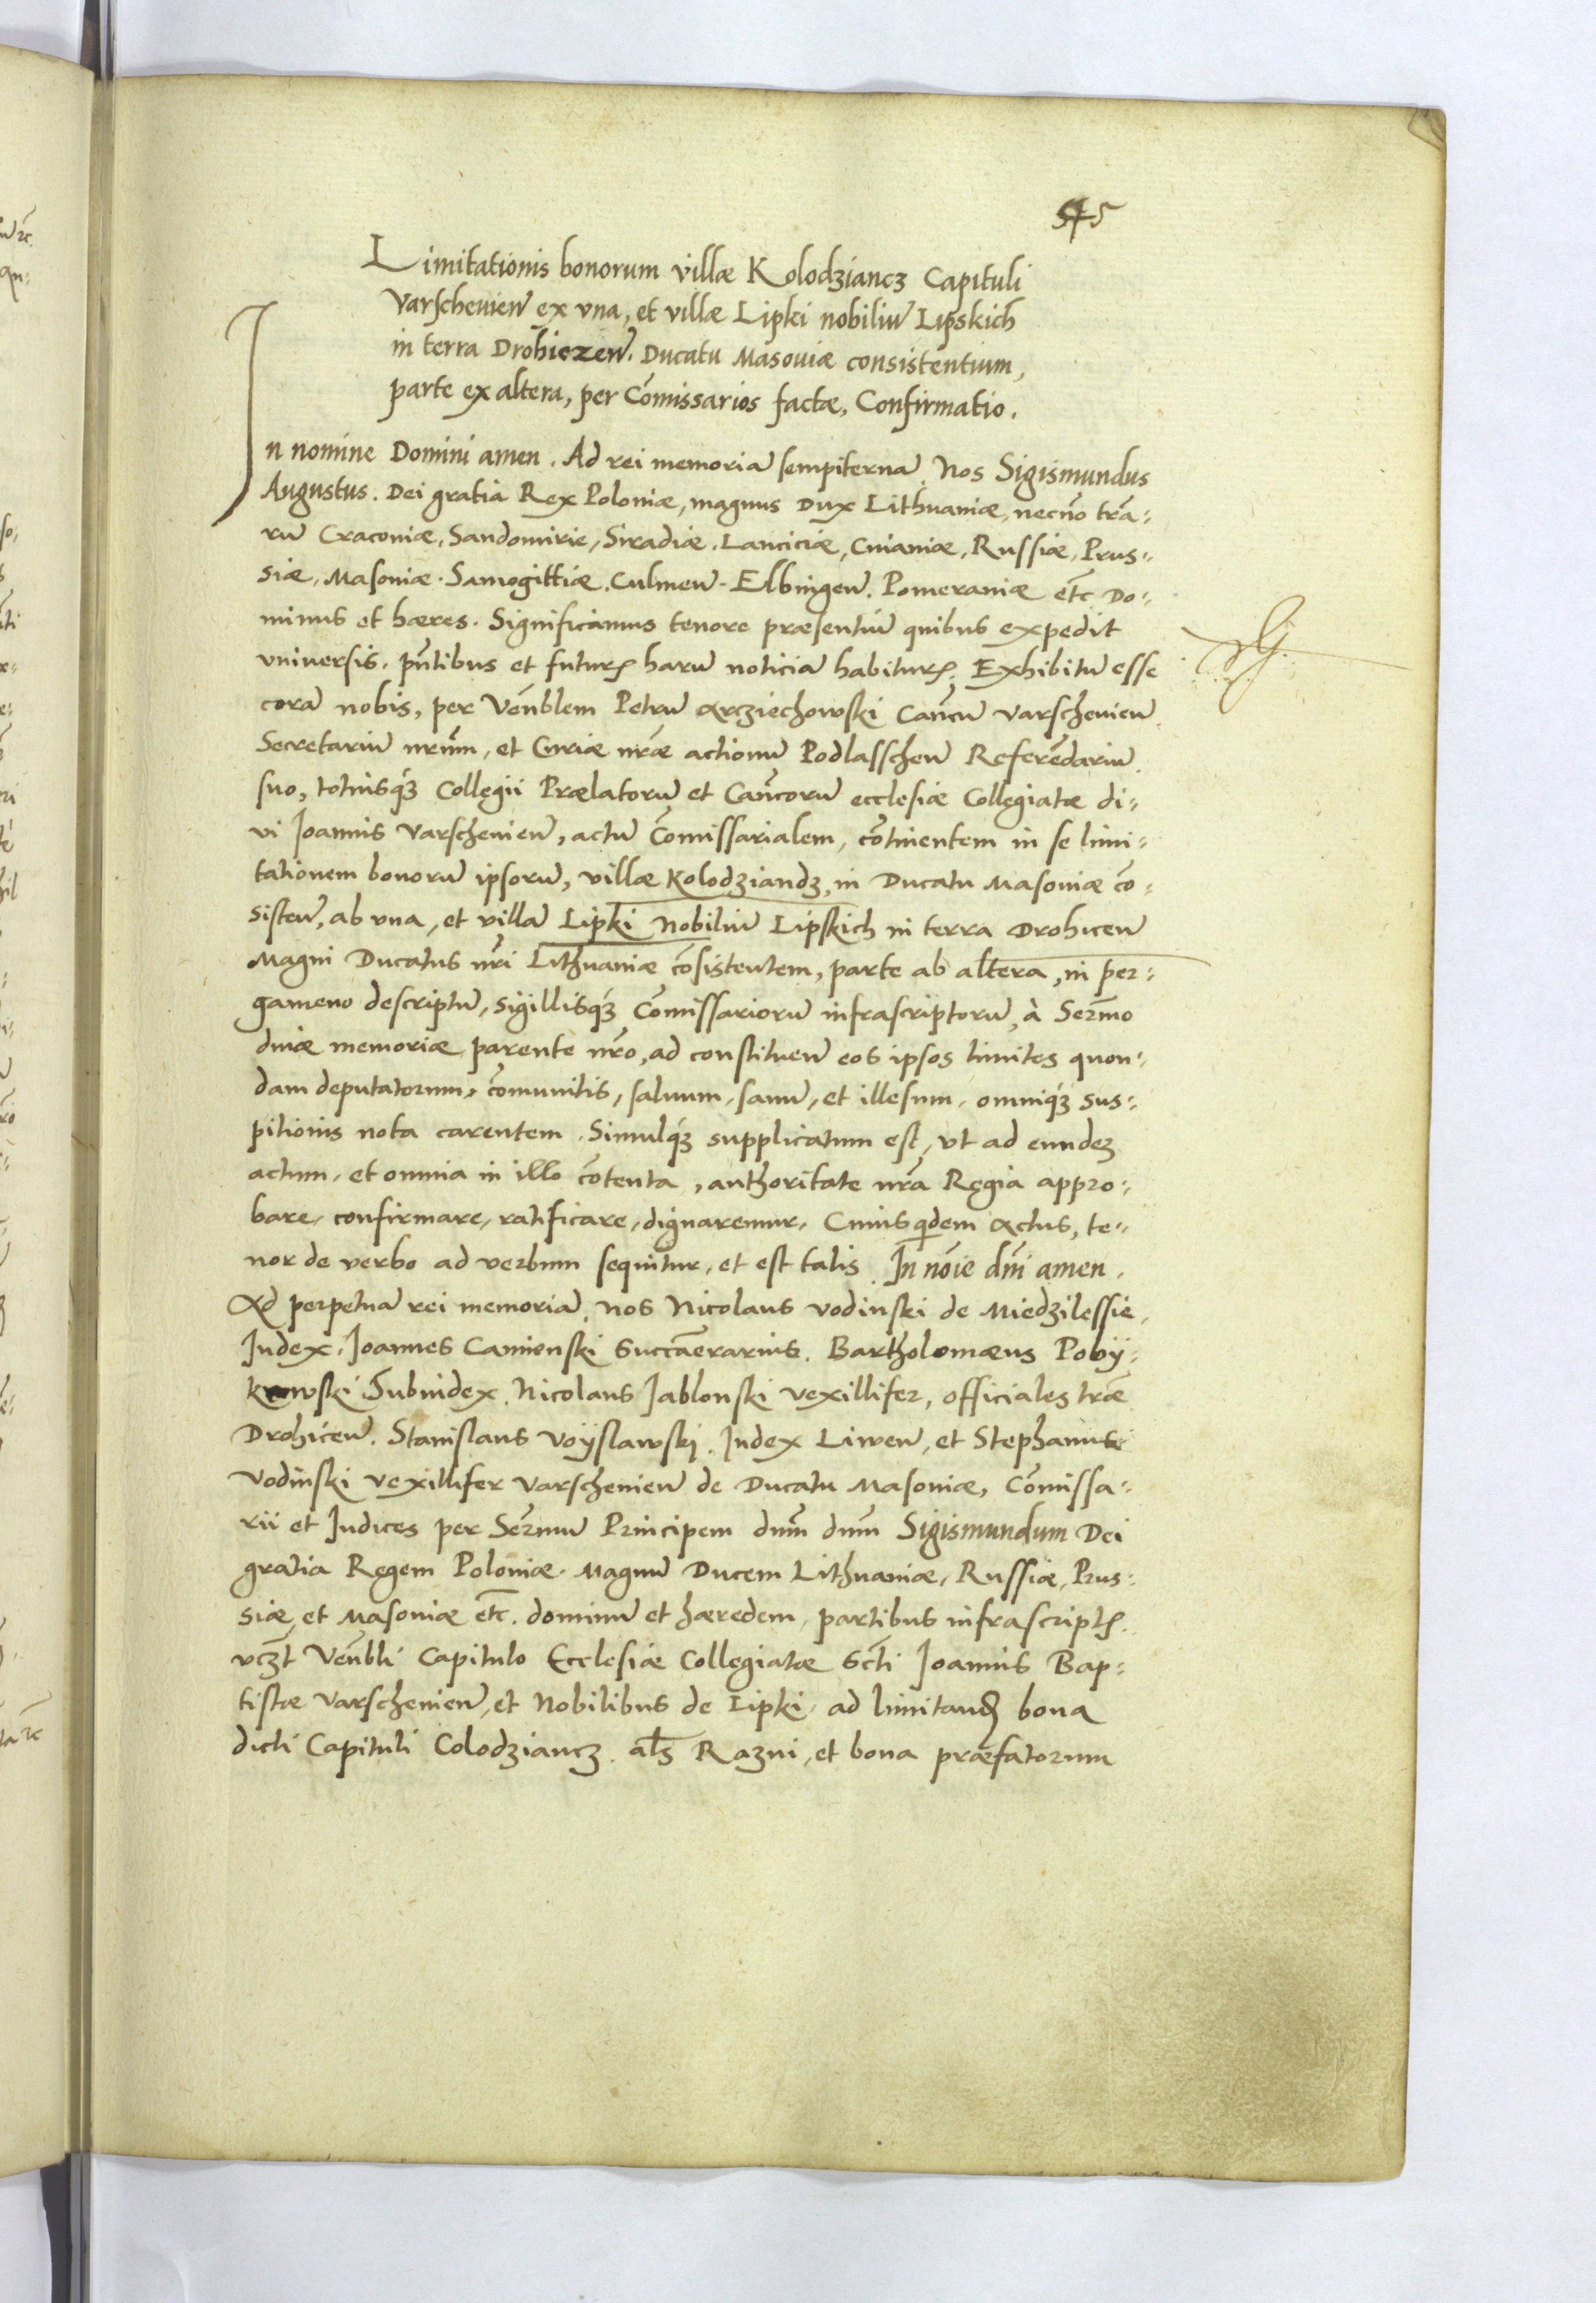 545
Limitationis bonorum villæ Kolodziancz Capituli
Varschevien̄ ex vna, et villæ Lipki nobiliū Lipskich
in terra Drohiczen̄. Ducatu Masoviæ consistentium,
parte ex altera, per Cōmissarios factæ, Confirmatio.
In nomine Domini amen. Ad rei memoriā sempiternā Nos Sigismundus
Augustus. Dei gratia Rex Poloniæ, magnus Dux Lithuaniæ, necnō trā=
rū Cracoviæ, Sandomirie, Siradiæ. Lanciciæ, Cuiaviæ, Russiæ, Prus=
siæ, Masoviæ. Samogittiæ. Culmen̄. Elbingen̄. Pomeraniæ etc̄ Do=
minus et hæres. Significamus tenore præsentiū quibus expedit
vniversis. pn̄tibus et futurꝭ harū noticiā habiturꝭ. Exhibitū esse
corā nobis, per Ven̄blem Petrū Arcziechowski Can̄cū varschevien̄
Secretariū nr̄um, et Curiæ nr̄æ actionū Podlasschen̄ Referēdariū
suo, totiusq́ꝫ Collegii Prælatorū et Can̄corū ecclesiæ Collegiatæ di=
vi Joannis varschevien̄, actū Cōmissarialem, cōtinentem in se limi=
tationem bonorū ipsorū, villæ Kolodziandz, in Ducatu Masoviæ cō=
sisten̄, ab vna, et villā Lipki Nobiliū Lipskich in terra Drohicen̄
Magni Ducatus nr̄i Lithuaniæ cōsistentem, parte ab altera, in per=
gameno descriptū, sigillisq́ꝫ Cōmissariorū infrascriptorū, à Serm̄o
divæ memoriæ parente nr̄o, ad constituen̄ eos ipsos limites quon=
dam deputatorum, cōmunitis, saluum, sanū, et illesum, omniq́ꝫ sus=
pitionis nota carentem. Simulq́ꝫ supplicatum est, vt ad eundez
actum, et omnia in illo cōtenta, authoritate nr̄a Regia appro=
bare, confirmare, ratificare, dignaremur. Cuius qidem Actus, te=
nor de verbo ad verbum sequitur, et est talis. In nōie dn̄i amen.
Ad perpetuā rei memoriā, nos Nicolaus vodinski de Miedzilessie,
Judex. Joannes Camienski Succāerarius. Bartholomæus Poby=
kowski Subiudex. Nicolaus Jablonski vexillifer, officiales trǣ
Drohicen̄. Stanislaus Voyslawski. Judex Liwen̄, et Stephanus
Vodinski vexillifer varschevien̄ de Ducatu Masoviæ, Cōmissa=
rii et Judices per Serm̄ū Principem dn̄m dn̄m Sigismundum Dei
gratia Regem Poloniæ. Magnū Ducem Lithuaniæ, Russiæ, Prus=
siæ, et Masoviæ etc̄. dominū et hæredem, partibus infrascriptꝭ.
vcꝫt Ven̄bli Capitulo Ecclesiæ Collegiatæ Scti Joannis Bap=
tistæ varschevien̄, et Nobilibus de Lipki, ad limitandꝭ bona
dicti Capituli Colodziancz. als̄ Razni, et bona præfatorum